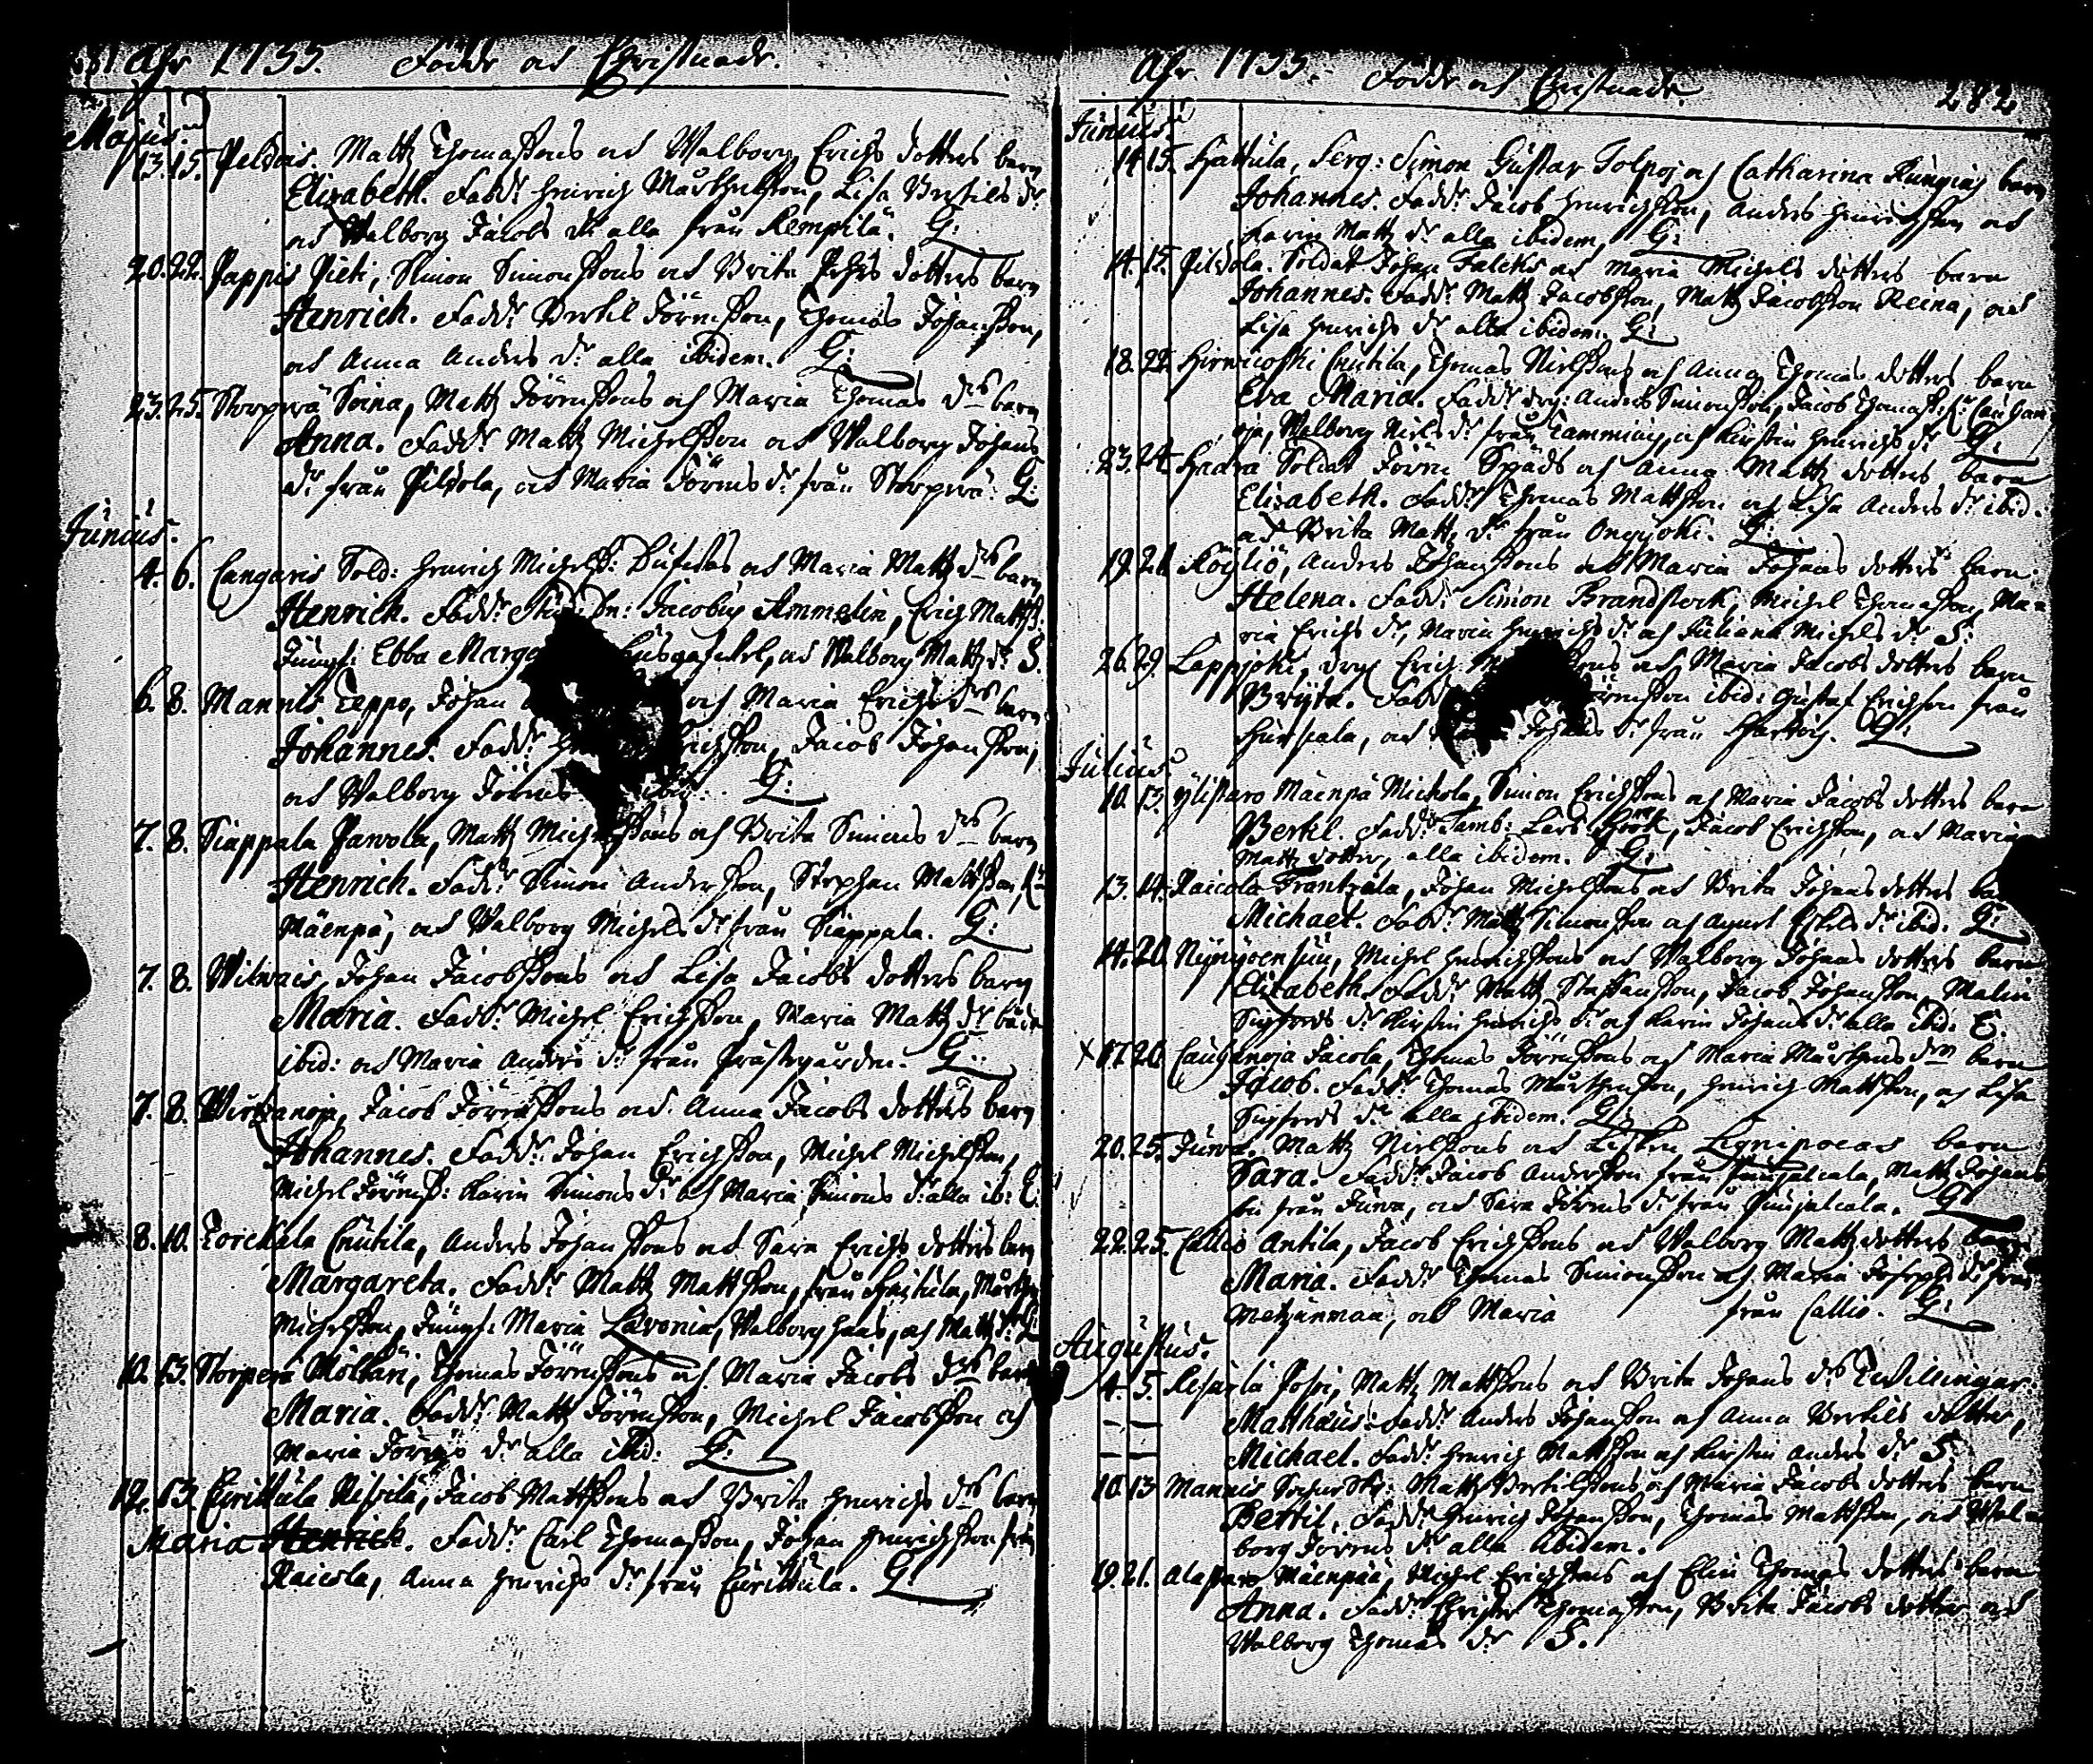 281 Åhr 1755. Födde och Christnade.
Majus.
13. 15. Peldois. Matts Thomassons och Walborg Erichs dotters barn
Elisabeth. Fadd:r Henrich Mårthensson, Lisa Bertils d:r
och Walborg Jacobs d:r alla från Kempilä. G:
20. 22. Pappis Pieti, Simon Simonssons och Brita dotters barn
Henrich. Fadd:r Bertil Jörensson, Thomas Johansson,
och Anna Anders d:r alla ibidem. G:
23. 25. Storperä Soina, Matts Jörenssons och Maria Thomas d:rs barn
Anna. Fadd:r Matts Michelsson och Walborg Johans
d:r från Pildola, och Maria Jörens d:r från Storperä. G:
Junius.
4. 6. Cangaris Sold: Henrich Michelss: och Maria Matts d:rs barn
Henrich. Fadd:r Jacobus Ammelin, Erich Mattss:
Jungf: Ebba och Walborg Matts d:r S.
6. 8. Mannis Teppo, Johan och Maria Erichs d:rs barn
Johannes. Fadd:r Jacob Johansson,
och Walborg Jörens ibid: G:
7. 8. Siappala Pavola, Matts Michelssons och Brita Simons d:rs barn
Henrich. Fadd:r Simon Andersson, Stephan Mattsson,
Mäenpä, och Walborg Michels d:r från Siappala. G:
7. 8. Wilvais, Johan Jacobssons och Lisa Jacobs dotters barn
Maria. Fadd:r Michel Erichsson, Maria Matts d:r både
ibid: och Maria Anders d:r från Prästegården. G:
7. 8. Wirtzanoja, Jacob Jörenssons och Anna Jacobs dotters barn
Johannes. Fadd:r Johan Erichsson, Michel Michelsson,
Michel Jörenss: Karin Simons d:r och Maria Simons d:r alla ib: E:
8. 10. Torckala Cnutila, Anders Johanssons och Sara Erichs dotters barn
Margareta. Fadd:r Matts Mattsson, från
Michelsson, Jungf: Maria Levonia, Walborg och
10. 13. Storperä Möltäri, Thomas Jörenssons och Maria Jacobs d:rs barn
Maria. Fadd:r Matts Jörensson, Michel Jacobsson och
Maria Jörens d:r alla ibid: G:
12. 13. Eurittula Rispilä, Jacob Mattssons och Brita Henrichs d:rs barn
Maria Henrich. Fadd:r Carl Thomasson, Johan Henrichsson från
Raicola, Anna Henrichs d:r från Eurittula. G:
Åhr 1755. Födde och Christnade. 282
Junius.
14. 15. Hattula, Serg: Simon Gustav Tolpos och Catharina barn
Johannes. Fadd:r Jacob Henrichsson, Anders Henrichsson och
Karin Matts d:r alla ibidem. G:
14. 15. Pildola. Soldat Johan Falcks och Maria Michels dotters barn
Johannes. Fadd:r Matts Jacobsson, Matts Jacobsson Reena, och
Lisa Henrichs d:r alla ibidem. G:
18. 22. Hirvicoski Cnutila, Thomas Nielssons och Anna Thomas dotters barn
Eva Maria. Fadd:r Anders Simonsson, Jacob Thomass:
Walborg Niels d:r från Tammiais, och Kirstin Henrichs d:r G:
23. 24. Haara Soldat Jören Späds och Anna Matts dotters barn
Elisabeth. Fadd:r Thomas Mattsson och Lisa Anders d:r ibid:
och Brita Matts d:r från Ongijoki. G:
19. 21. Köyliö, Anders Johanssons och Maria Johans dotters barn
Helena. Fadd:r Simon Brandsteck, Michel Thomasson, Ma-
ria Erichs d:r, Maria Henrichs d:r och Juliana Michels d:r S:
26. 29. Lappijoki, Erich och Maria Jacobs dotters barn
Bryta. Fadd:r Jörensson ibid: Gustaf Erichson från
och Johans d:r från G:
Julius.
10. 13. Ylistaro Mäenpä Michola, Simon Erichssons och Maria Jacobs dotters barn
Bertil. Fadd:r Tamb: Lars Jacob Erichsson, och Maria
Matts dotter, alla ibidem. G:
13. 14. Raicola Frantzila, Johan Michelssons och Brita Johans dotters barn
Michael. Fadd:r Matts Simonsson och Agnes Eskils d:r ibid. G:
14. 20. Michel Henrichssons och Walborg Johans dotters barn
Elisabeth. Fadd:r Matts Staffansson, Jacob Johansson, Malin
Sigfreds d:r Kirstin Henrichs d:r och Karin Johans d:r alla ibid. E.
X 17. 20. Cauhanoja Jacola, Thomas Jörenssons och Maria Mårthens d:rs barn
Jacob. Fadd:r Thomas Mårthensson, Henrich Mattsson, och Lisa
Sigfreds d:r alla ibidem. G:
20. 25. Juva. Matts Nielssons och Lisken Lignipoeas barn
Sara. Fadd:r Jacob Andersson från Punjalcala, Matts Johans
son från Juva, och Sara Jörens d:r från Punjalcala. G:
22. 25. Callio Antila, Jacob Erichssons och Walborg Matts dotters barn
Maria. Fadd:r Thomas Simonsson och Maria Josephs d:r från
Metzänmaa, och Maria från Callio. G:
Augustus.
4. 5. Matts Mattssons och Brita Johans d:rs Twillingar.
Matthæus: Fadd:r Anders Johansson och Anna Bertils dotter,
Michael. Fadd:r Henrich Mattsson och Kirstin Anders d:r S.
10. 13. Mannis Matts Bertilssons och Maria Jacobs dotters barn
Bertil. Fadd:r Henrich Johansson, Thomas Mattsson, och Wal-
borg Jörens d:r alla ibidem.
19. 21. Alastaro Mäenpää, Michel Erichssons och Elin Thomas dotters barn
Anna. Fadd:r Christer Thomasson, Brita Jacobs dotter och
Walborg Thomas d:r S.